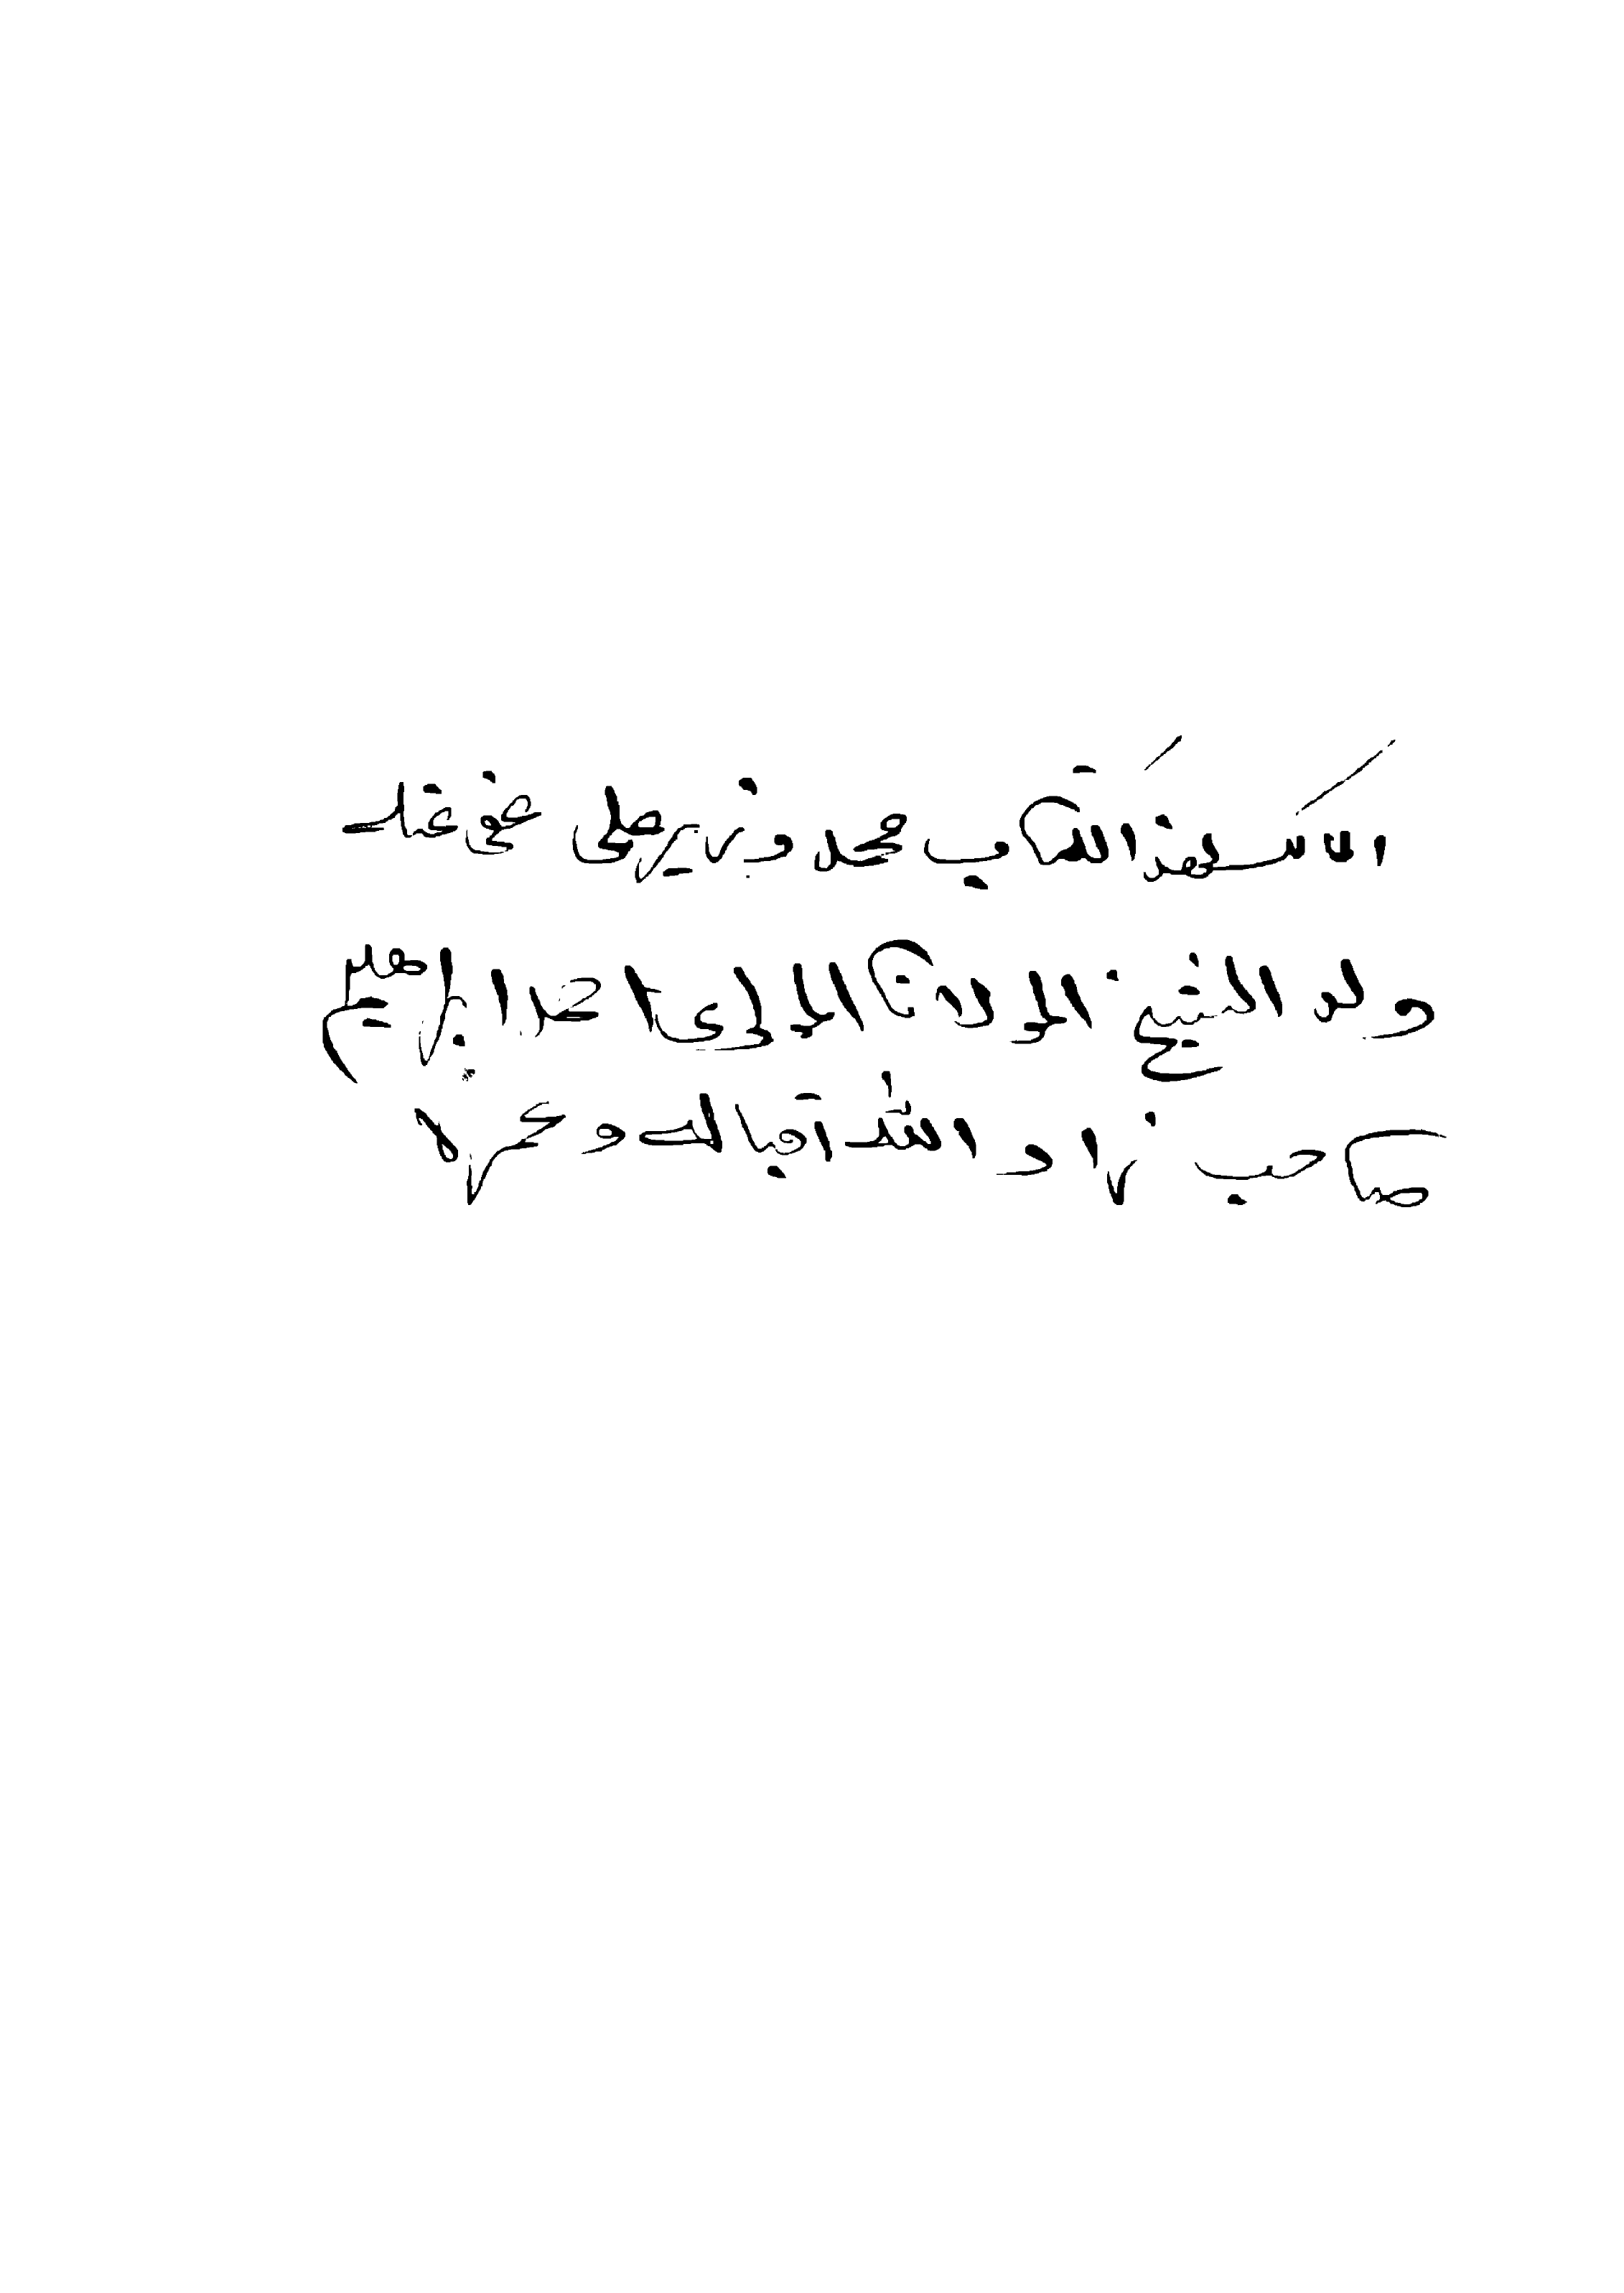 المالك لهذا الكتاب محمد وزير على عفى عنه
ولد الشيخ المولانا المولوى احمد ابراهيم
صاحب زاد الله اقباله وعمره